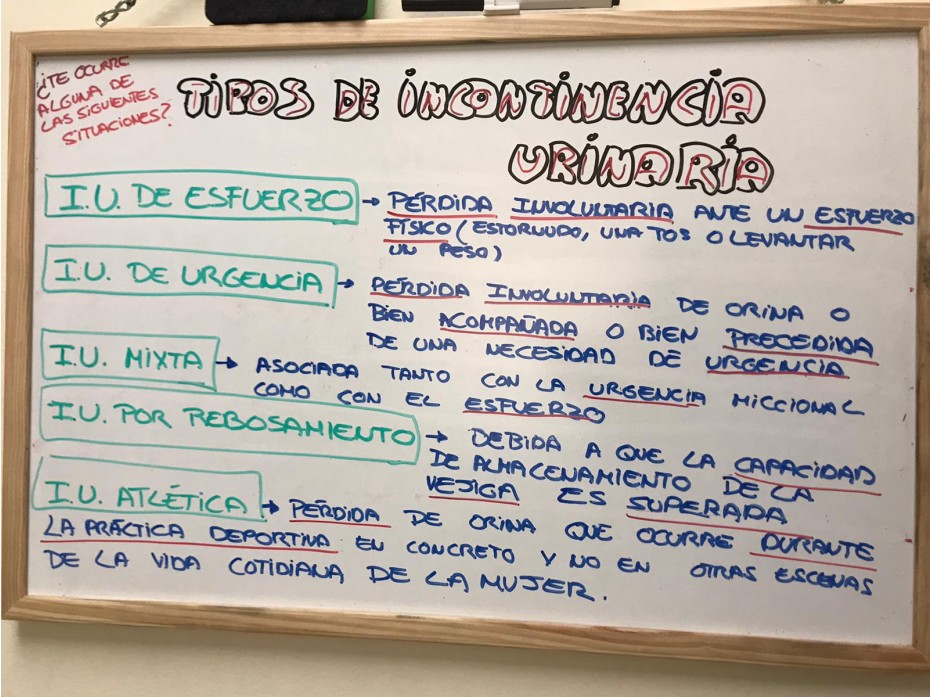 ¿TE OCURRE
ALGUNA DE
LAS SIGUIENTES
SITUACIONES?
TIPOS DE INCONTINENCIA
URINARIA
I.U. DE ESFUERZO → PÉRDIDA INVOLUNTARIA ANTE UN ESFUERZO
FÍSICO (ESTORNUDO, UNA TOS O LEVANTAR
UN PESO)
I.U. DE URGENCIA → PÉRDIDA INVOLUNTARIA DE ORINA O
BIEN ACOMPAÑADA O BIEN PRECEDIDA
DE UNA NECESIDAD DE URGENCIA
I.U. MIXTA → ASOCIADA TANTO CON LA URGENCIA MICCIONAL
COMO CON EL ESFUERZO
I.U. POR REBOSAMIENTO → DEBIDA A QUE LA CAPACIDAD
DE ALMACENAMIENTO DE LA
VEJIGA ES SUPERADA
I.U. ATLÉTICA → PÉRDIDA DE ORINA QUE OCURRE DURANTE
LA PRÁCTICA DEPORTIVA EN CONCRETO Y NO EN OTRAS ESCENAS
DE LA VIDA COTIDIANA DE LA MUJER.